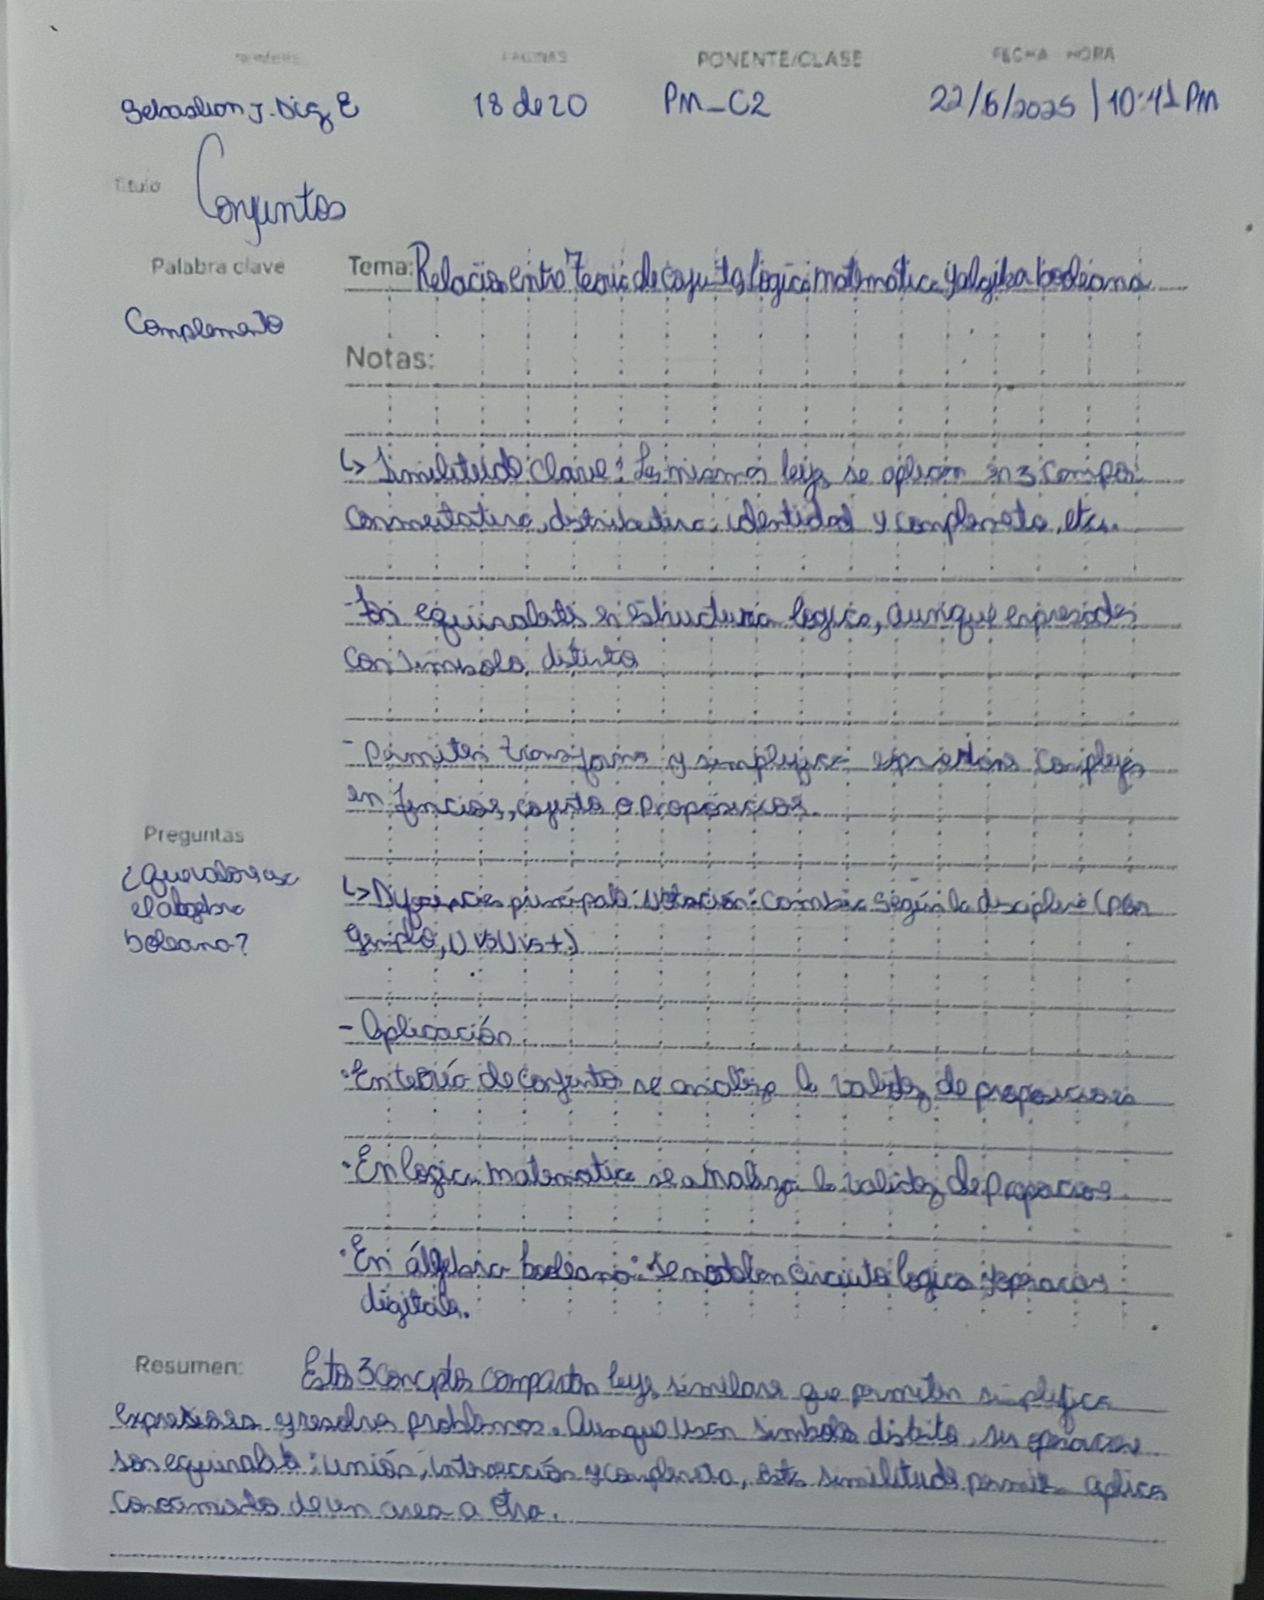 NOMBRE PAGINAS PONENTE/CLASE FECHA - HORA
Sebastian J. Diaz E 18 de 20 PM_C2 22/6/2025 | 10:41 PM
Titulo Conjuntos
Palabra clave Tema: Relacion entre Teoria de conjuntos, logica matemática y algebra booleana
Complemento
Notas:
↳ Similitud clave: Las mismas leyes se aplican en 3 campos
conmutativa, distributiva, identidad y complemento, etc.
- Son equivalentes en estructura logica, aunque expresadas
con simbolos distintos
- Permiten transformar y simplificar expresiones complejas
en funciones, conjuntos o proposiciones.
Preguntas
¿Que valores usa
el algebra
boleana?
↳ Diferencias principales: Notación: Cambia según la disciplina (por
ejemplo, U vs U vs +)
- Aplicación
• En teoría de conjuntos se analiza la validez de proposiciones
• En logica matematica se analiza la validez de proposiciones
• En álgebra booleana: se modelan circuitos logicos y operaciones
digitales.
Resumen: Estos 3 conceptos comparten leyes similares que permiten simplificar
expresiones y resolver problemas. Aunque usen simbolos distintos, sus operaciones
son equivalentes: unión, intersección y complemento, esta similitud permite aplicar
conocimientos de un area a otra.